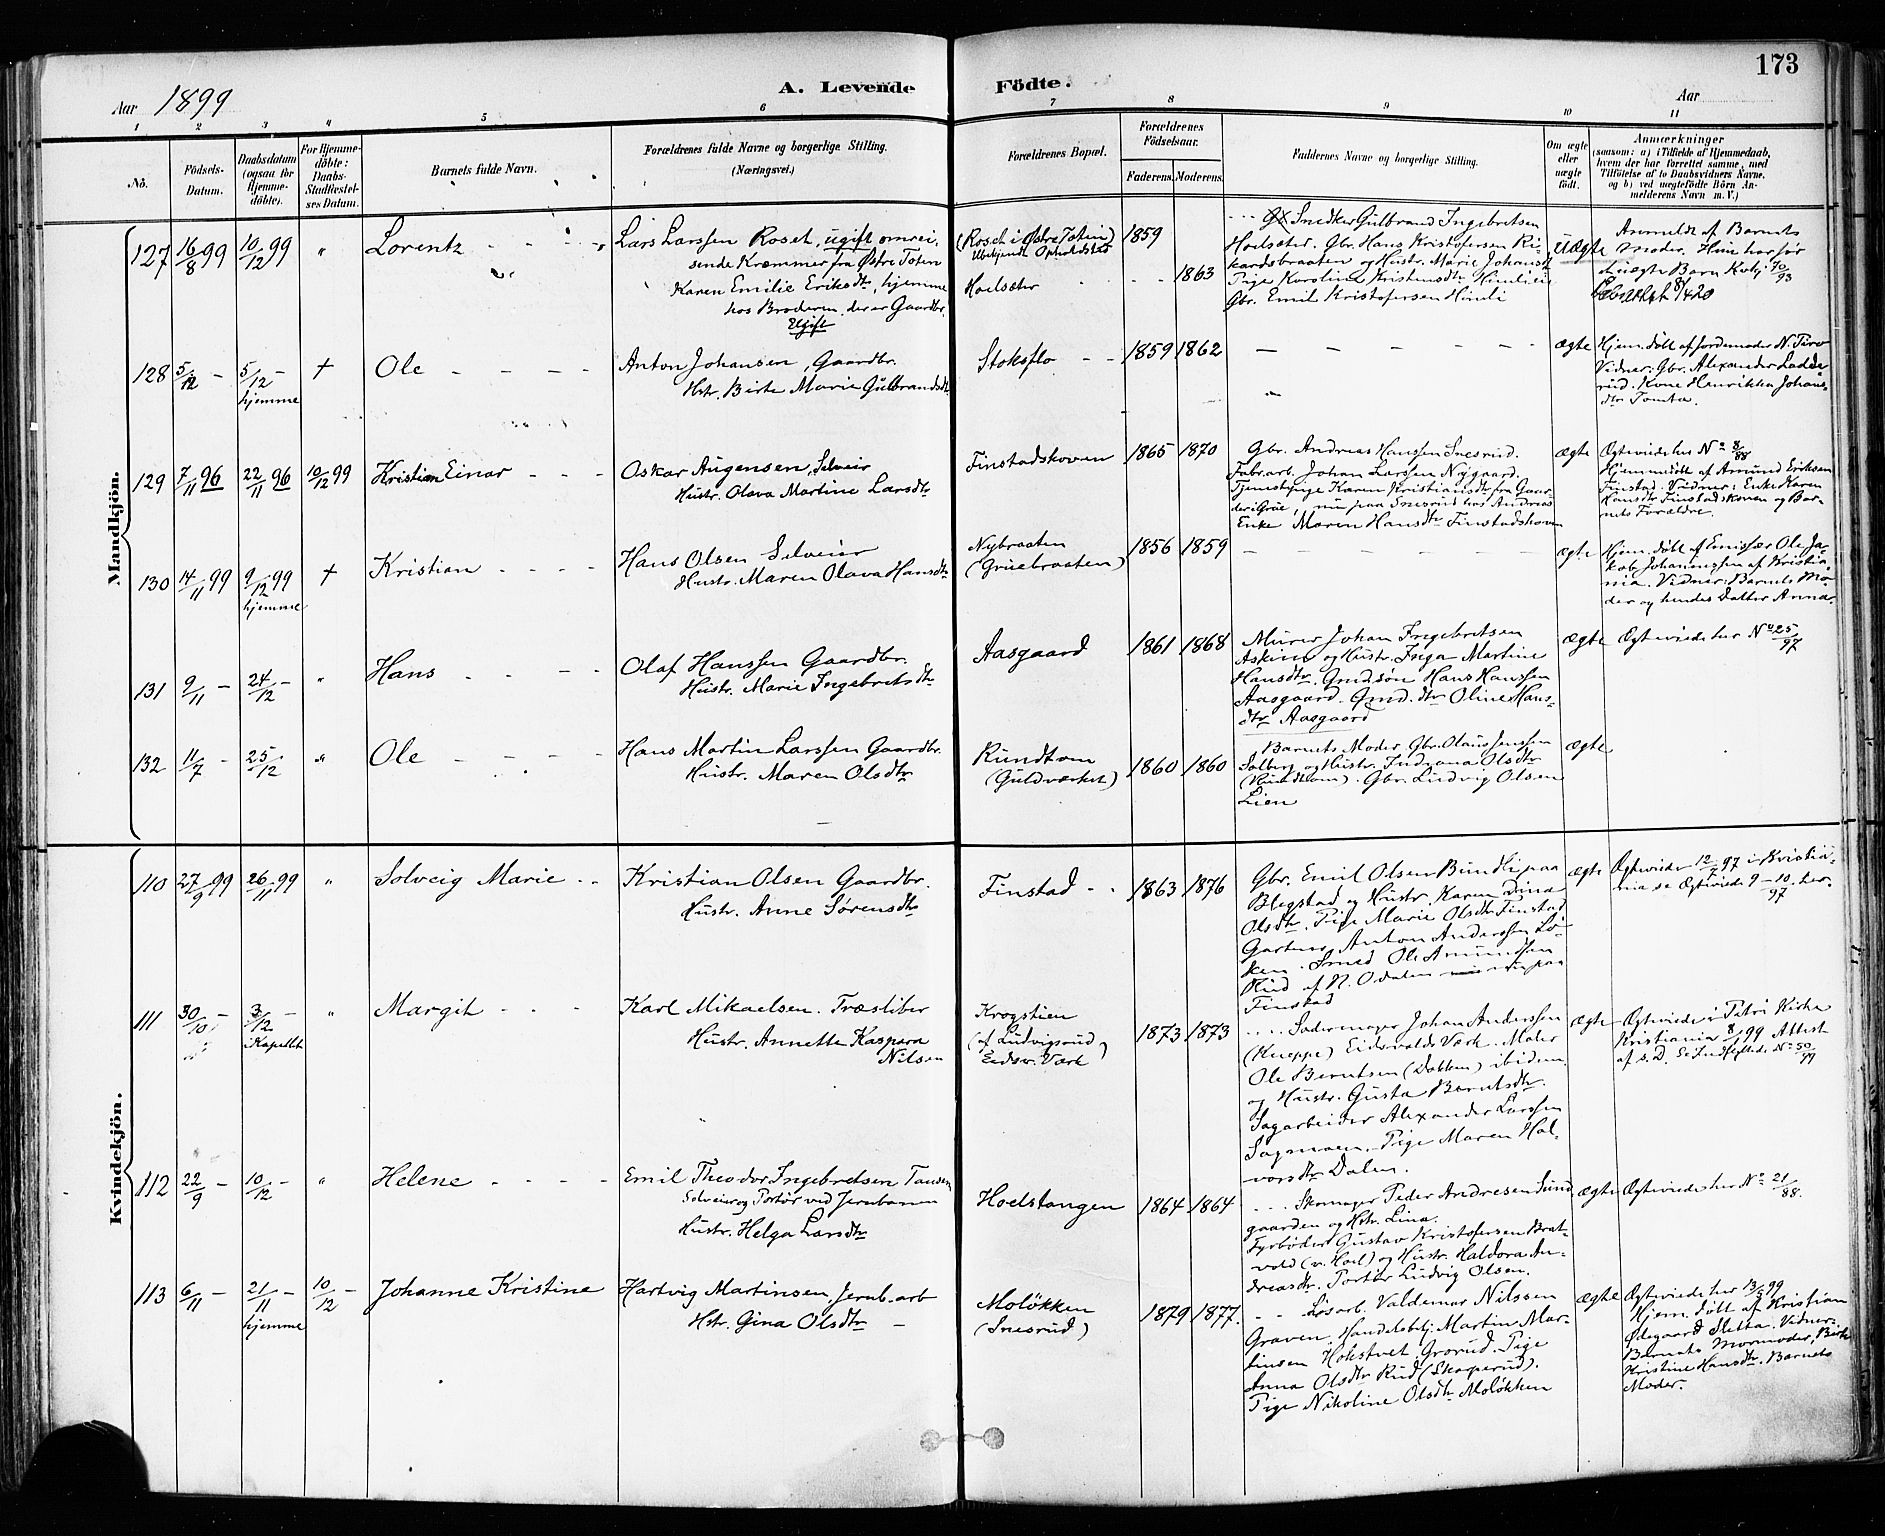 173
Aar 1899
A. Levende Födte.
Aar
1 2 3 4 5 6 7 8 9 10 11
No.
Födsels-
Datum.
Daabsdatum
(ogsaa for
Hjemme-
döbte).
For Hjemme-
döbte:
Daabs-
Stadfæstel-
ses Datum.
Barnets fulde Navn.
Forældrenes fulde Navne og borgerlige Stilling.
(Næringsvei.)
Forældrenes Bopæl.
Forældrenes
Födselsaar.
Faderens. Moderens.
Faddernes Navne og borgerlige Stilling.
Om ægte
eller
uægte
födt.
Anmærkninger
(saasom: a) i Tilfælde af Hjemmedaab,
hvem der har forrettet samme, med
Tilföielse af to Daabsvidners Navne,
og b) ved uægtefödte Börn An-
melderens Navn m. V.)
Mandkjön.
127 16/8 99 10/12 99 "
Lorentz
Lars Larssen Roset, ugift omrei-
sende Kræmmer fra Østre Toten
Karen Emilie Eriksdtr, hjemme
hos Broderen, der er Gaardbr.
Ugift
(Roset i Østre Toten)
Ubekjendt Opholdsted
Hoelsæter
1859
1863
Snedker Gulbrand Ingebretsen
Hoelsæter. Gbr. Hans Kristofersen Ri-
kardsbraaten og Hustr. Marie Johansdtr
Pige Karoline Kristensdtr Himlieie
Gbr. Emil Kristofersen Himli
Uægte
Anmeldt af Barnets
Moder. Hun har før
1 uægte Barn Kvkj. 70/93
128 5/12 - 5/12 - +
hjemme
Ole
Anton Johansen, Gaardbr.
Hstr. Birte Marie Gulbrandsdtr
Stoksflo
1859 1862
ægte
Hjem. døbt af Jordemoder N. Turo
Vidner: Gbr. Alexander Ladde-
rud. Kone Henrikka Johans-
dtr Tomta.
129 7/11 96 22/11 96 10/12 99
Kristian Einar
Oskar Augensen, Selveier
Hustr. Olava Martine Larsdtr
Finstadskoven
1865 1870
Gbr. Andreas Hanssen Snesrud.
Fabr.arb. Johan Larssen Nygaard.
Tjenestepige Karen Kristiansdtr fra Gaar-
der i Grue, nu paa Snesrud hos Andreas
Enke Maren Hansdtr Finstadskoven
ægte
Ægteviede her No 8/88
Hjemmedøbt af Amund Eriksen
Finstad. Vidner: Enke Karen
Hansdtr Finstadskoven og Bar-
nets Forældre.
130 14/11 99 9/12 99 +
hjemme
Kristian
Hans Olsen Selveier
Hustr. Maren Olava Hansdtr
Nybraaten
(Gruebraaten)
1856 1859
ægte
Hjem. døbt af Emissær Ole Ja-
kob Johannssen af Kristia-
nia. Vidner: Barnets Mo-
der og hendes Datter Anna.
131 9/11 - 24/12 - "
Hans
Olaf Hanssen Gaardbr.
Hustr. Marie Ingebretsdtr
Aasgaard
1861 1868
Murer Johan Ingebretsen
Askim og Hustr. Inga Martine
Hansdtr. Gmdsøn Hans Hanssen
Aasgaard. Gmd.dtr Oline Hans-
dtr Aasgaard
ægte
Ægteviede her No 25/97
132 11/7 - 25/12 "
Ole
Hans Martin Larssen Gaardbr.
Hustr. Maren Olsdtr
Rundtom
(Guldverket)
1860 1860
Barnets Moder. Gbr. Olaus Jenssen
Solberg og Hustr. Indiana Olsdtr
(Rundtom). Gbr. Ludvig Olsen
Lien
ægte
Kvindekjön.
110 27/9 99 26/11 99 "
Solveig Marie
Kristian Olsen Gaardbr.
Hustr. Anne Sørensdtr
Finstad
1863 1876
Gbr. Emil Olsen Bundli paa
Blegstad og Hustr. Karen Dina
Olsdtr. Pige Marie Olsdtr Finstad
Gartner Anton Anderssen Lø-
ken. Smed Ole Amundsen
Rud af N. Odalen nu paa
Finstad
ægte
Ægteviede 12/7 97 i Kristia-
nia se Ægteviede 9-10/97 her.
111 30/10 - 3/12 - "
i Kapellet
Margit
Karl Mikaelsen. Træsliber
Hustr. Annette Kaspara
Nilsen
Krogstien
(af Ludvigsrud)
Eidsv. Værk
1873 1873
Sadermager Johan Anderssen
(Kneppe) Eidsvolds Værk. Maler
Ole Berntsen (Dokken) ibidem
og Hustr. Gusta Berntsdtr.
Sagarbeider Alexander Larssen
Sagmoen. Pige Maren Hal-
vorsdtr Dalen.
ægte
Ægteviede i Petri Kirke
Kristiania 8/1 99 Attest
af s.D. Se Indflyttede No 50/99
112 22/9 - 10/12 - "
Helene
Emil Theodor Ingebretsen Tausen
Selveier og Portør ved Jernbanen
Hustr. Helga Larsdtr
Hoelstangen
1864 1864
Skomager Peder Andresen Sund
gaarden og Hstr. Lina.
Fyrbøder Gustav Kristofersen Brat-
vold (v. Hoel) og Hustr. Haldora An-
dreasdtr. Portør Ludvig Olsen.
ægte
Ægteviede her No 21/88.
113 6/11 - 21/11 - 10/12 -
hjemme
Johanne Kristine
Hartvig Martinsen, Jernb.arb
Hstr. Gina Olsdtr
Moløkken
(Snesrud)
1879 1877.
Løsarb. Valdemar Nilssen
Graven. Handelsbtj. Martin Mar-
tinsen Hokstvet, Grorud. Pige
Anna Olsdtr Rud (Skarperud).
Pige Nikoline Olsdtr Moløkken
ægte
Ægteviede her 13/99
Hjem. døbt af Kristian
Ødegaard Sletta. Vidner:
Barnets Mormoder, Birte
Kristine Hansdtr. Barnets
Moder.